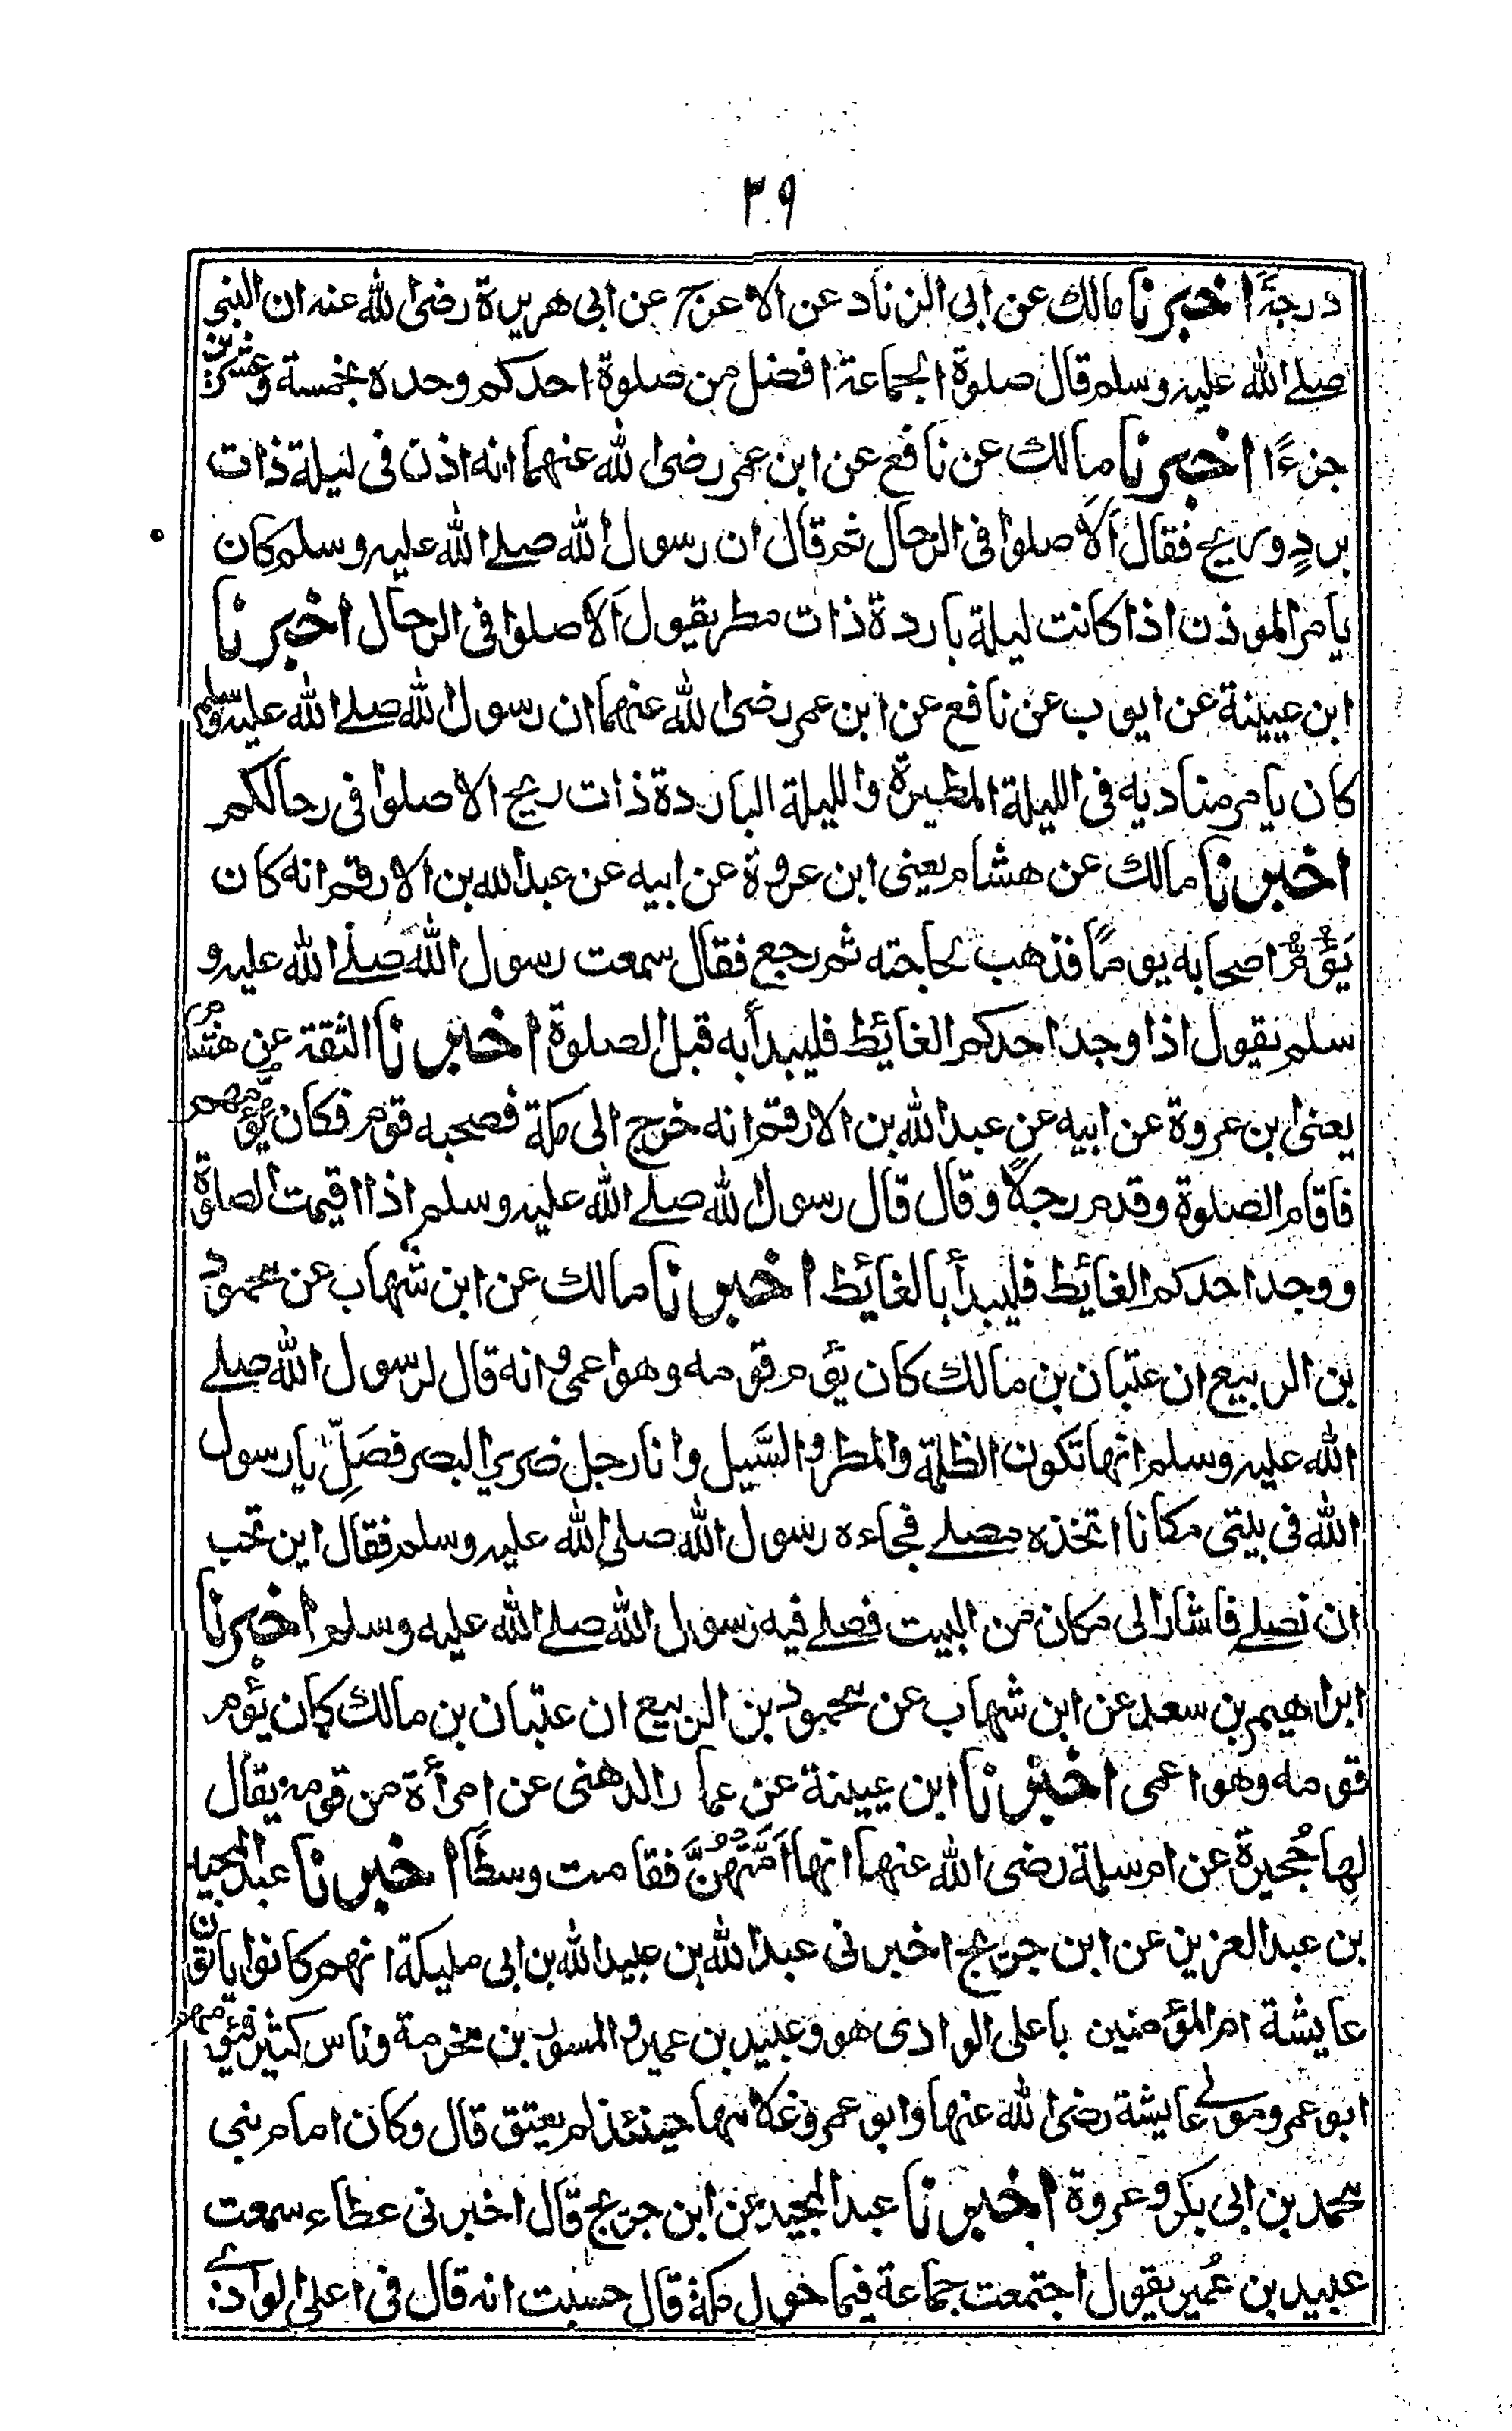 ٣٩
درجةً اخبرنا مالك عن ابى الزناد عن الاعرج عن ابى هريرة رضى الله عنه ان النبى
صلے الله عليه وسلم قال صلوة الجماعة افضل من صلوة احدكم وحده بخمسة وعشرين
جزءًا اخبرنا مالك عن نافع عن ابن عمر رضى الله عنهما انه اذن فى ليلة ذات
بردٍ وريح فقال ألا صلوا فى الرحال ثم قال ان رسول الله صلے الله عليه وسلم كان
يامر الموذن اذا كانت ليلة باردة ذات مطر يقول ألا صلوا فى الرحال اخبرنا
ابن عيينة عن ايوب عن نافع عن ابن عمر رضى الله عنهما ان رسول الله صلے الله عليه وسلم
كان يامر مناديه فى الليلة المطيرة والليلة الباردة ذات ريح الا صلوا فى رحالكم
اخبرنا مالك عن هشام يعنى ابن عروة عن ابيه عن عبد الله بن الارقم انه كان
يَؤُمُّ اصحابه يومًا فذهب لحاجته ثم رجع فقال سمعت رسول الله صلے الله عليه و
سلم يقول اذا وجد احدكم الغائط فليبدأ به قبل الصلوة اخبرنا الثقة عن هشام
يعنى ابن عروة عن ابيه عن عبد الله بن الارقم انه خرج الى مكة فصحبه قوم فكان يؤمهم
فاقام الصلوة وقدم رجلًا وقال قال رسول الله صلے الله عليه وسلم اذا اقيمت الصلوة
ووجد احدكم الغائط فليبدأ بالغائط اخبرنا مالك عن ابن شهاب عن محمود
بن الربيع ان عتبان بن مالك كان يؤم قومه وهو اعمى وانه قال لرسول الله صلے
الله عليه وسلم انها تكون الظلمة والمطر والسَّيل وانا رجل ضرير البصر فصَلِّ يا رسول
الله فى بيتى مكانا اتخذه مصلے فجاءه رسول الله صلى الله عليه وسلم فقال اين تحب
ان نصلے فاشار الى مكان من البيت فصلے فيه رسول الله صلے الله عليه وسلم اخبرنا
ابراهيم بن سعد عن ابن شهاب عن محمود بن الربيع ان عتبان بن مالك كان يؤم
قومه وهو اعمى اخبرنا ابن عيينة عن عمار الدهنى عن امرأة من قومه يقال
لها حُجيرة عن ام سلمة رضى الله عنها انها اَمَّتْهُنَّ فقامت وسطًا اخبرنا عبد المجيد
بن عبد العزيز عن ابن جريج اخبرنى عبد الله بن عبيد الله بن ابى مليكة انهم كانوا ياتون
عايشة ام المؤمنين باعلى الوادى هو وعبيد بن عمير والمسور بن مخرمة وناس كثير فيؤمهم
ابو عمرو مولے عايشة رضى الله عنها وابو عمرو غلامها حينئذ لم يعتق قال وكان امام بنى
محمد بن ابى بكر وعروة اخبرنا عبد المجيد عن ابن جريج قال اخبرنى عطاء سمعت
عبيد بن عُمير يقول اجتمعت جماعة فيما حول مكة قال حسبت انه قال فى اعلى الوادے